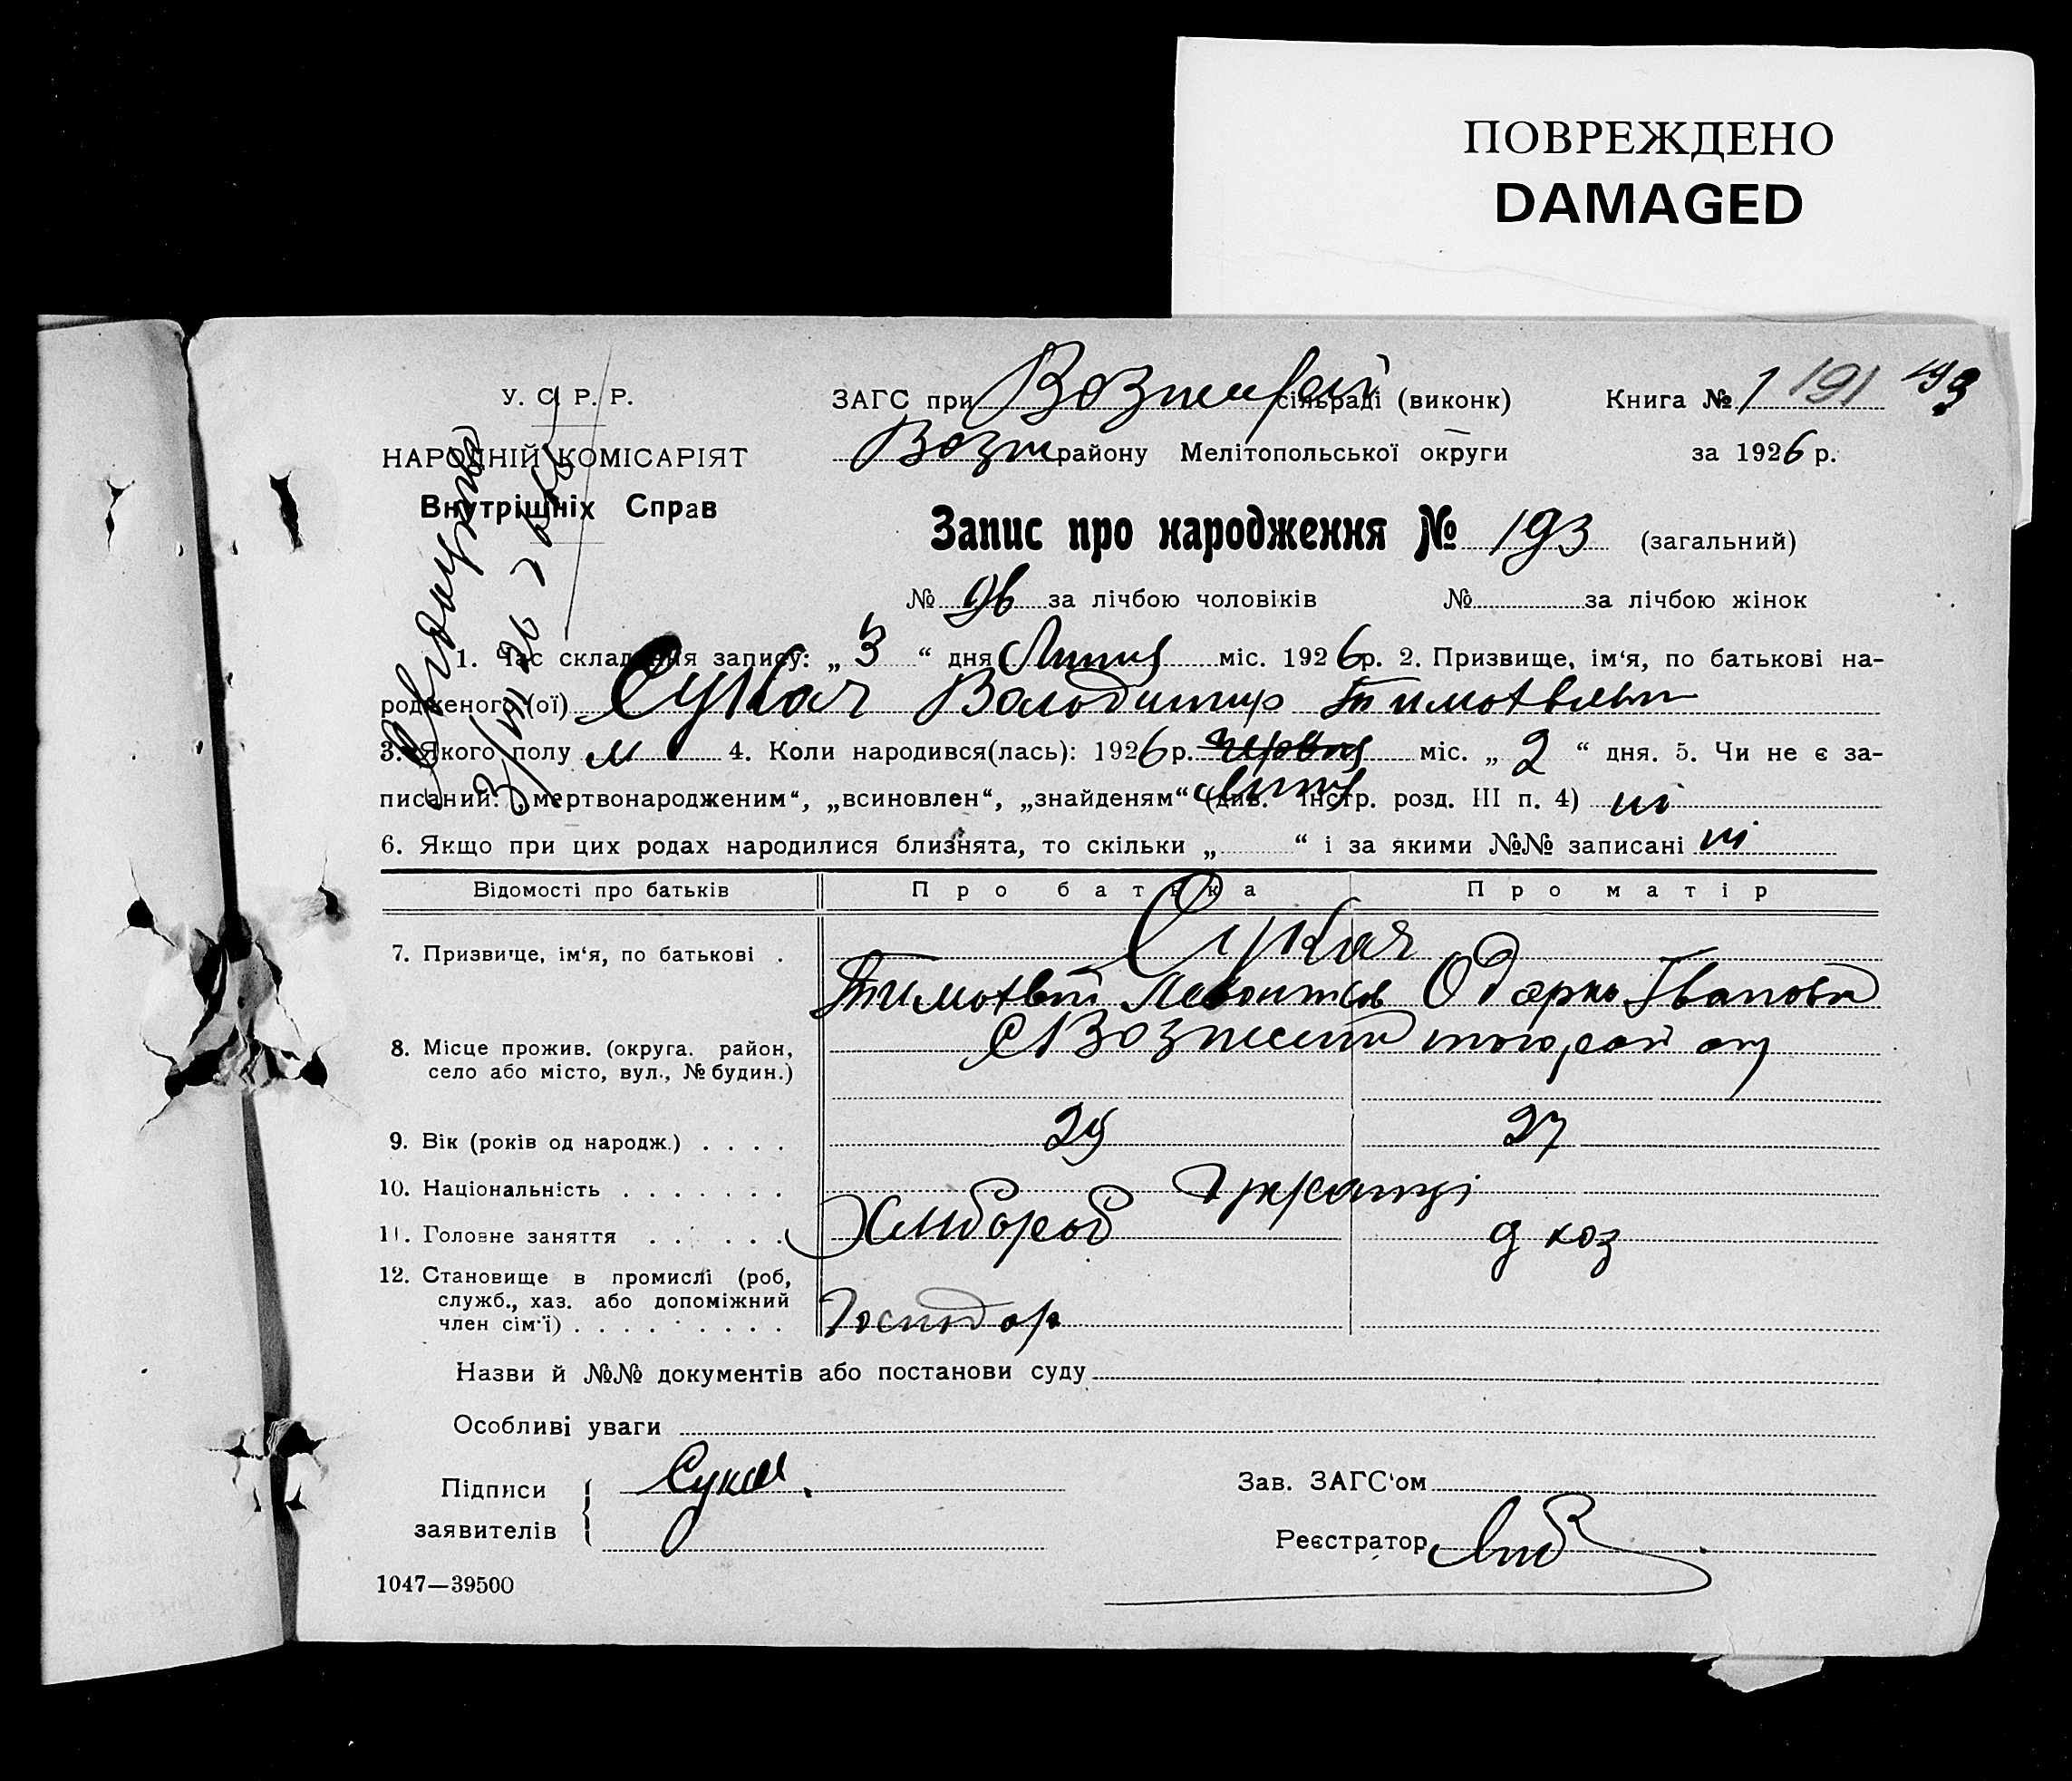 ПОВРЕЖДЕНО
DAMAGED
У. С. Р. Р.
НАРОДНІЙ КОМІСАРІЯТ
Внутрішніх Справ
ЗАГС при сільраді (виконк) Книга № 1 191 193
Возн району Мелітопольської округи за 1926 р.
Запис про народження № 193 (загальний)
№ 96 за лічбою чоловіків № за лічбою жінок
1. Час складення запису: „ 3 “ дня Липня міс. 1926 р. 2. Призвище, ім‘я, по батькові на-
родженого (ої) Сукач Володимир Тимотвієв
3. Якого полу м 4. Коли народився(лась): 1926 р. червня міс. „ 2 “ дня. 5. Чи не є за-
липня
писаний: „мертвонародженим“, „всиновлен“, „знайденям“ (див. інстр. розд. III п. 4) ні
6. Якщо при цих родах народилися близнята, то скільки „ “ і за якими №№ записані ні
Відомості про батьків Про батька Про матір
7. Призвище, ім‘я, по батькові . Сукач
Тимотвій Левонтів Одарка Іванова
8. Місце прожив. (округа. район, село або місто, вул., № будин.) с Вознесен того рай
9. Вік (років од народж.) . . . . 29 27
10. Національність . . . . . . . Українці
11. Головне заняття . . . . . . Хлібороб д хоз
12. Становище в промислі (роб, служб., хаз. або допоміжний член сім‘ї) . . . . . . . . . Господар
Назви й №№ документів або постанови суду
Особливі уваги
Підписи заявителів Сукач.
Зав. ЗАГС‘ом
Реєстратор
1047—39500